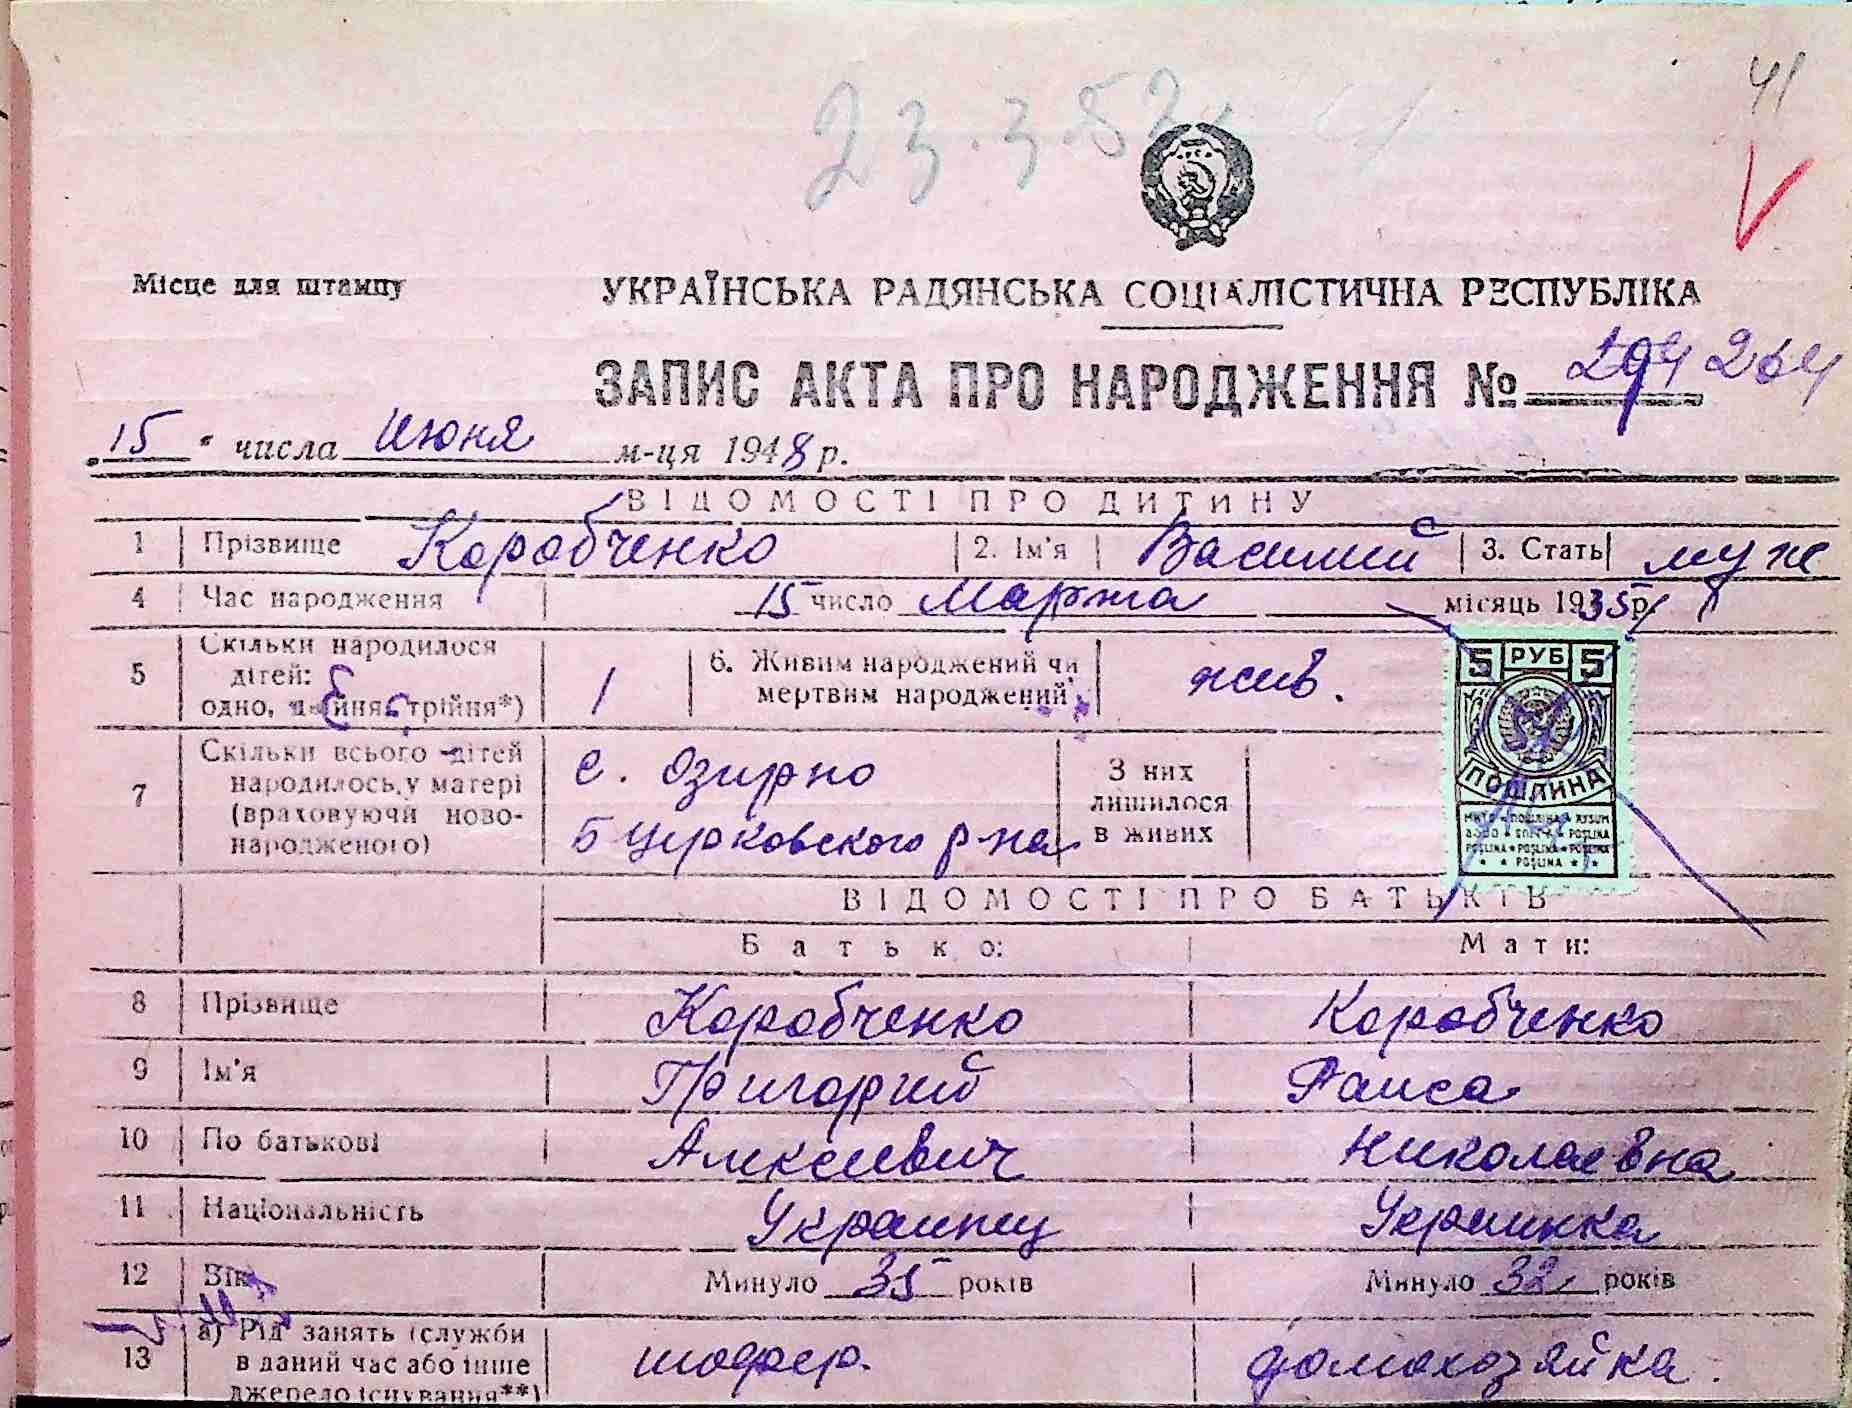 23.3.52
41
Місце для штампу
УКРАЇНСЬКА РАДЯНСЬКА СОЦІАЛІСТИЧНА РЕСПУБЛІКА
ЗАПИС АКТА ПРО НАРОДЖЕННЯ № 294 264
„15" числа июня м-ця 1948 р.
ВІДОМОСТІ ПРО ДИТИНУ
1 Прізвище Коробченко 2. Ім'я Василий 3. Стать муж
4 Час народження 15 число Марта місяць 1935 р.
5 Скільки народилося дітей: одно, двійня, трійня*) 1 6. Живим народжений чи мертвим народжений жив.
7 Скільки всього дітей народилось у матері (враховуючи новонародженого) с. Озирно Б Церковского р-на З них лишилося в живих
5 РУБ 5
ПОШЛИНА
ВІДОМОСТІ ПРО БАТЬКІВ
Батько: Мати:
8 Прізвище Коробченко Коробченко
9 Ім'я Григорий Раиса
10 По батькові Алексеевич Николаевна
11 Національність Украинец Украинка
12 Вік Минуло 35 років Минуло 32 років
13 а) Рід занять (служби в даний час або інше джерело існування**) шофер. домохозяйка.